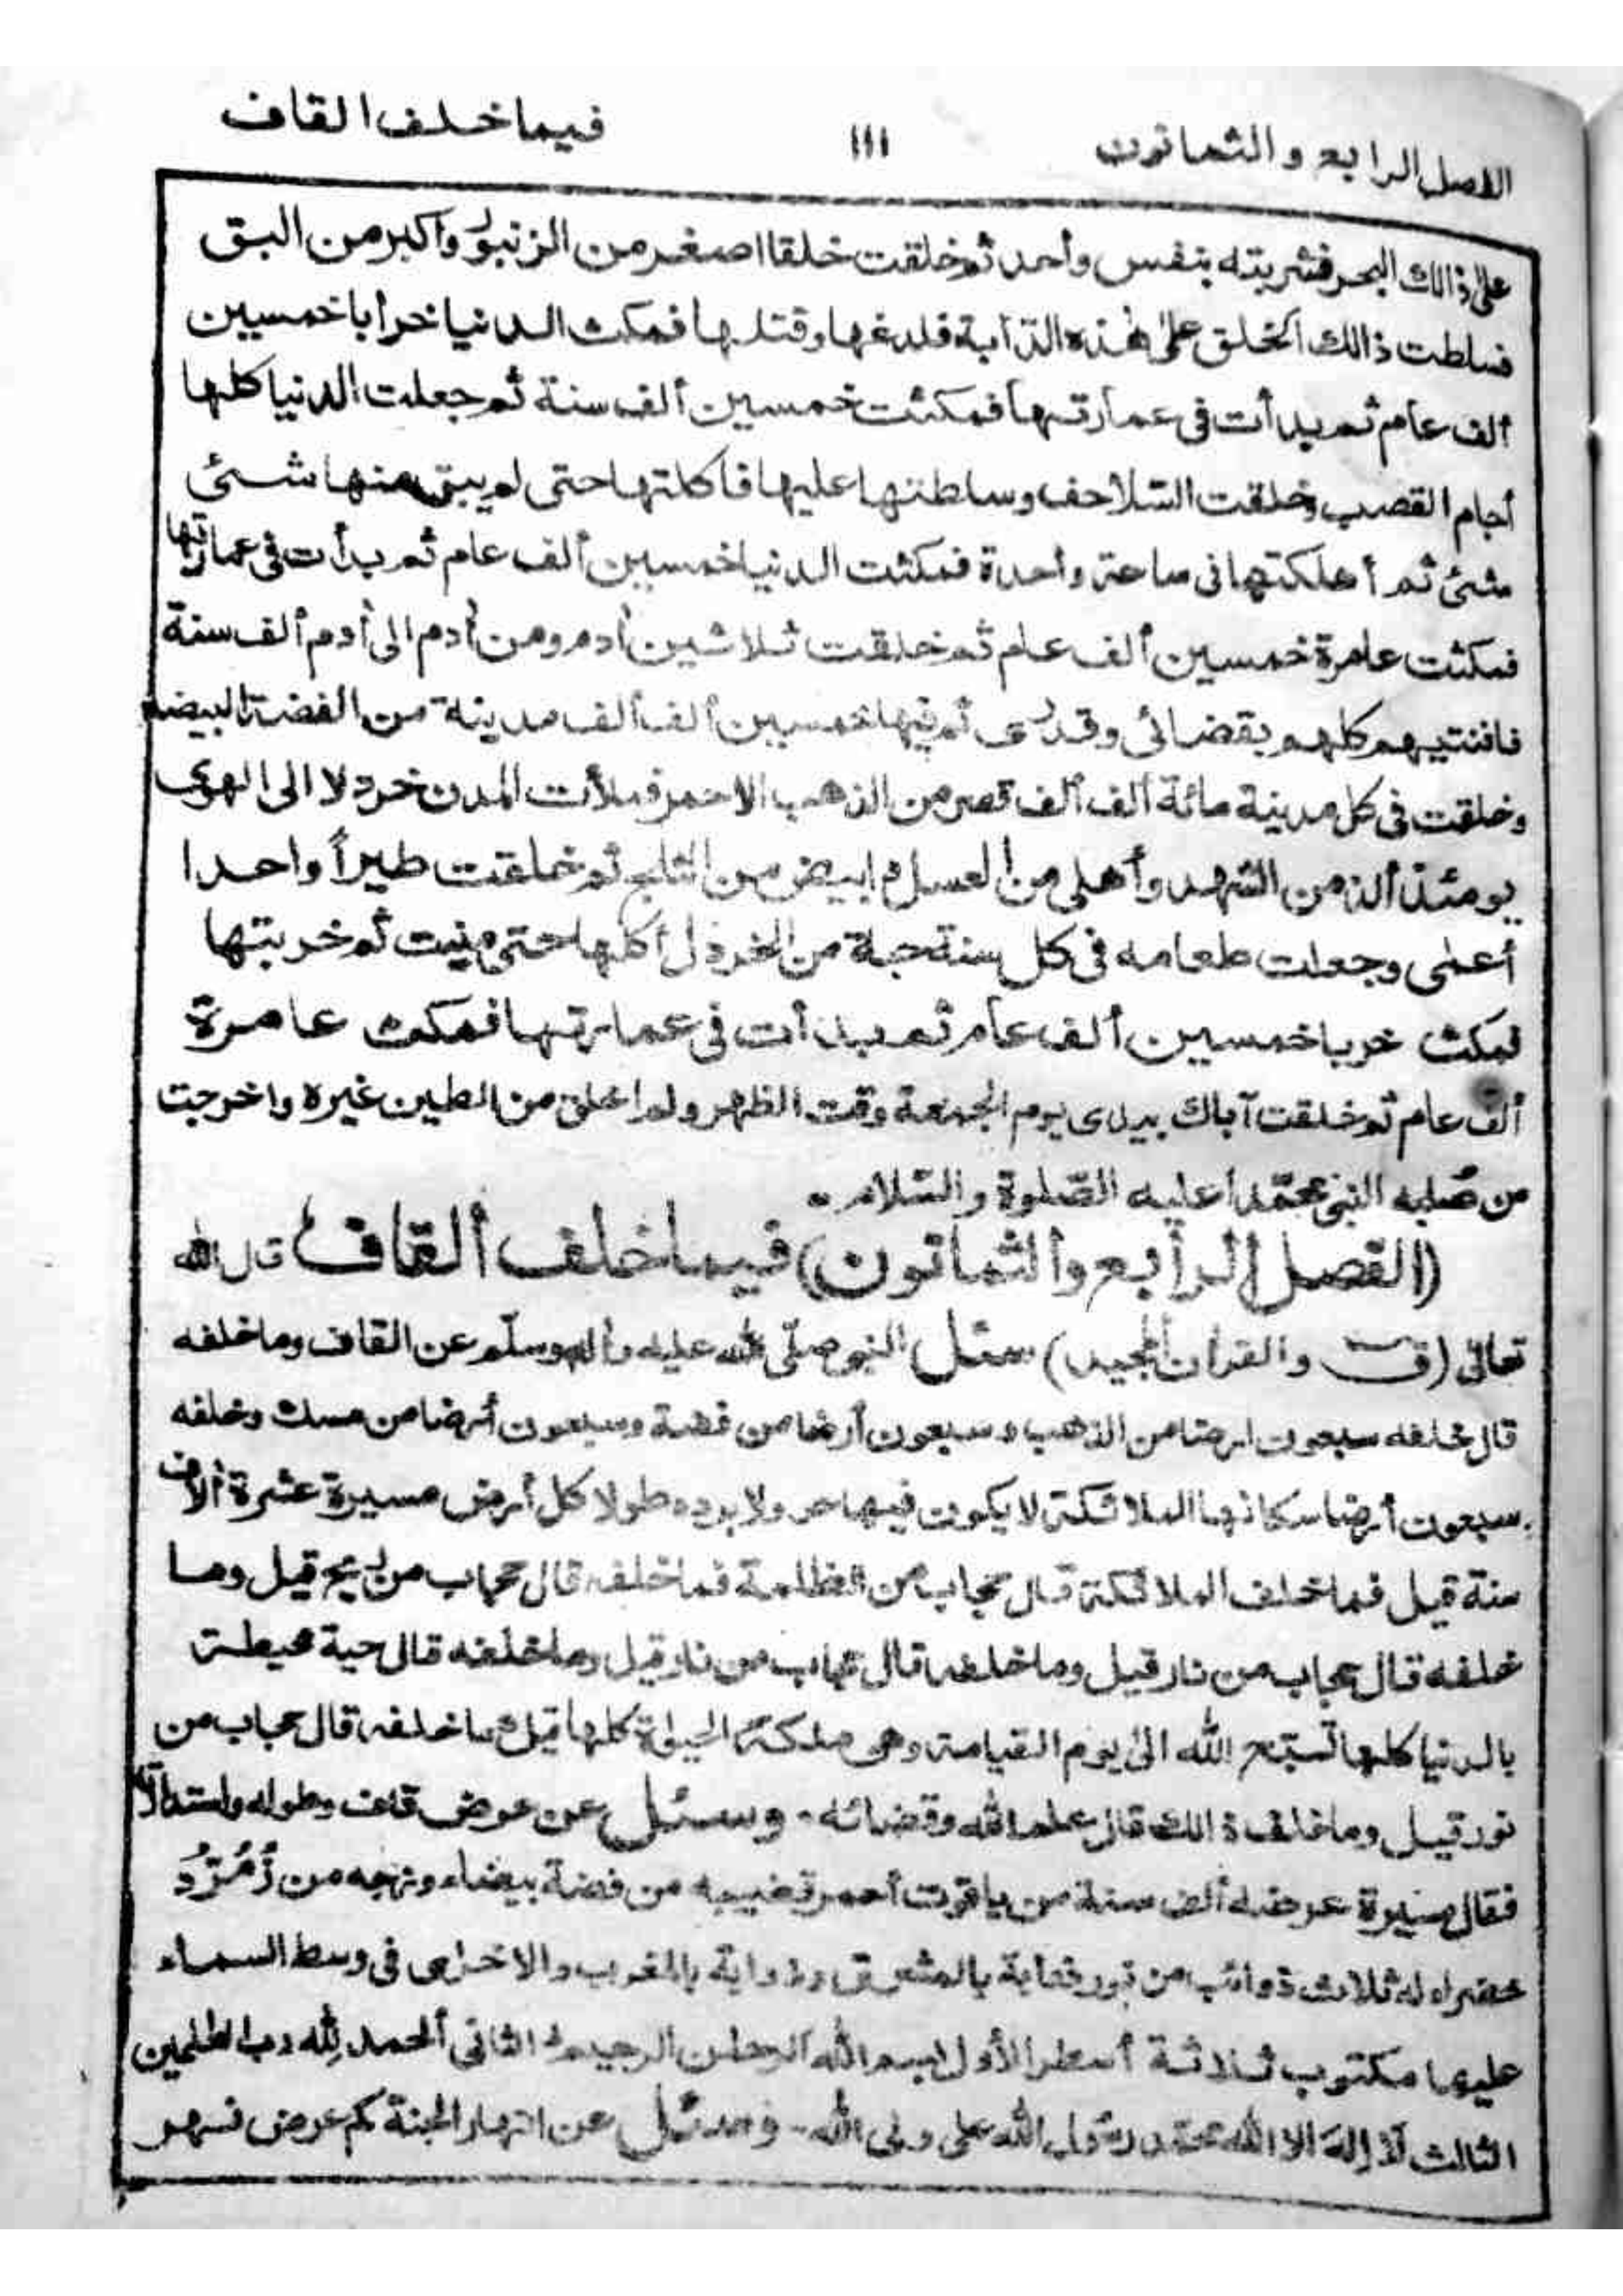 الفصل الرابع والثمانون ١١١ فيما خلف القاف
على ذالك البحر فشربته بنفس وأحد ثم خلقت خلقا اصغر من الزنبور وأكبر من البق
فسلطت ذالك الخلق على هٰذه الدّابة فلدغها وقتلها فمكث الدنيا خرابا خمسين
ألف عام ثم بدأت فى عمارتها فمكثت خمسين ألف سنة ثم جعلت الدنيا كلها
أجام القصب وخلقت السّلاحف وسلطتها عليها فاكلتها حتى لم يبق منها شئى
شئى ثم أهلكتها فى ساعة وأحدة فمكثت الدنيا خمسين ألف عام ثم بدأت فى عمارتها
فمكثت عامرة خمسين ألف عام ثم خلقت ثلاثين أدم ومن أدم الى أدم ألف سنة
فافنتيهم كلهم بقضائى وقدرى ثم فيها خمسين ألف ألف مدينة من الفضة البيضاء
وخلقت فى كل مدينة مائة ألف ألف قصر من الذهب الاحمر فملأت المدن خردلا الى الهوى
يومئذ ألذ من الشهد وأهلى من العسل و ابيض من الثلج ثم خلقت طيراً واحدا
أعمى وجعلت طعامه فى كل سنة حبة من الخردل أكلها حتى منيت ثم خربتها
فمكث خربا خمسين ألف عام ثم بدأت فى عمارتها فمكث عامرة
ألف عام ثم خلقت آباك بيدى يوم الجمعة وقت الظهر ولم اخلق من الطين غيره واخرجت
من صُلبه النبى محمّدا عليه الصّلوة والسّلام۔
(الفصل الرأبع والثمانون) فيما خلف ألقاف قال الله
تعالى (ق والقرأن المجيد) سئل النبى صلّى الله عليه وأله وسلّم عن القاف وما خلفه
قال خلفه سبعون ارضا من الذهب و سبعون أرضا من فضة وسبعون أرضا من مسك وخلفه
سبعون أرضا سكانها الملائكة لا يكون فيها حر ولا برده طولا كل أرض مسيرة عشرة ألاف
سنة قيل فما خلف الملائكة قال حجاب من الظلمة فما خلفه قال حجاب من ريح قيل وما
خلفه قال حجاب من نار قيل وما خلفه قال حجاب من نار قيل وما خلفه قال حية محيطة
بالدنيا كلها تسبّح الله الى يوم القيامة وهى ملكة الحيوٰة كلها قيل ما خلفه قال حجاب من
نور قيل وما خلف ذالك قال علم الله وقضائه۔ وسئل عن عرض قاف وطوله واستدارته
فقال مسيرة عرضه ألف سنة من ياقوت أحمر قضيبه من فضة بيضاء وزجه من زُمُرُّد
خضراء له ثلاث ذوائب من نور فذابة بالمشرق وذواية بالمغرب والاخرى فى وسط السماء
عليها مكتوب ثلاثة أسطر الأول بسم الله الرحمٰن الرحيم الثانى ألحمد لِلّٰه رب العٰلمين
الثالث لا إله الا الله محمّد رسول الله على ولى الله۔ وسئل عن انهار الجنة كم عرض نهر